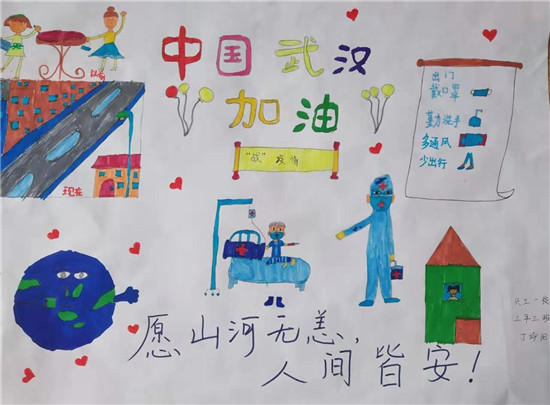 中国武汉
加油
"战"疫情
以前
现在
出门
戴口罩
勤洗手
多通风
少出行
愿山河无恙,
人间皆安!
二年三班